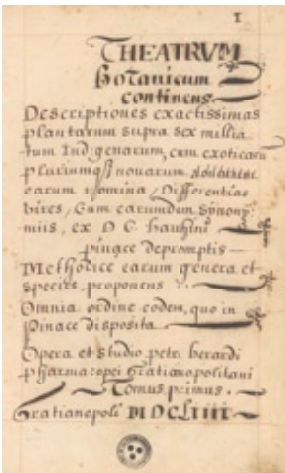 1
THEATRVM
Botanicum
continens
Descriptiones exactissimas
plantarum supra sex millia
tum Indigenarum, cum exoticarum
plurimumqȝ novarum
earum nomina, Differentias
vires, Cum earundum synony
miis, ex D C bauhini
pinace depromptis
Methodice earum genera et
species proponens
Omnia ordine eodem, quo in
Pinace disposita
Opera et studio petri berardi
pharmacopei Gratianopolitani
Tomus primus.
Gratianopoli MDCLIII